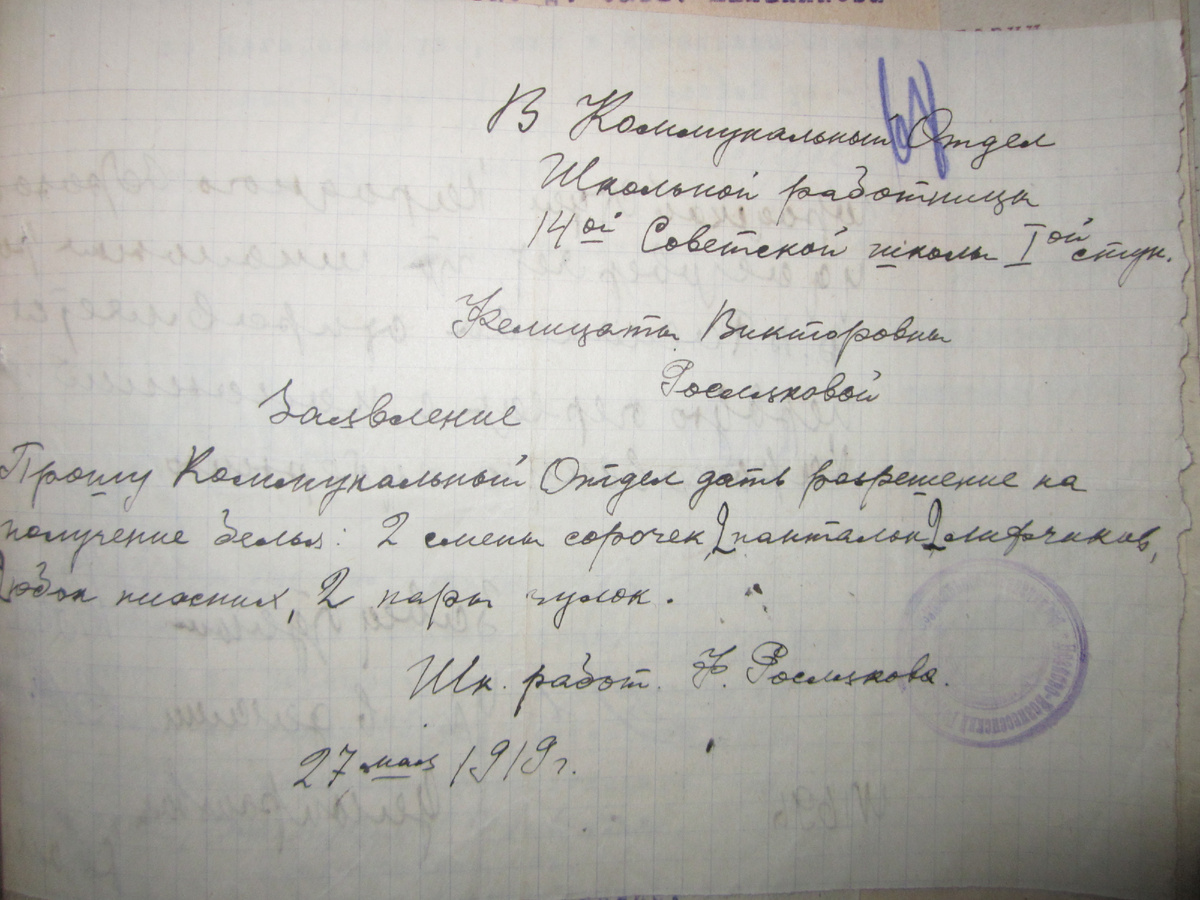 В Коммунальный Отдел
Школьной работницы
14ой Советской школы Iой ступ.
Фелицаты Викторовны
Росляковой
Заявление
Прошу Коммунальный Отдел дать разрешение на
получение белья: 2 смены сорочек, 2 панталон 2 лифчиков,
2 юбок нижних, 2 пары чулок.
Шк. работ. Ф. Рослякова.
27 мая 1919 г.